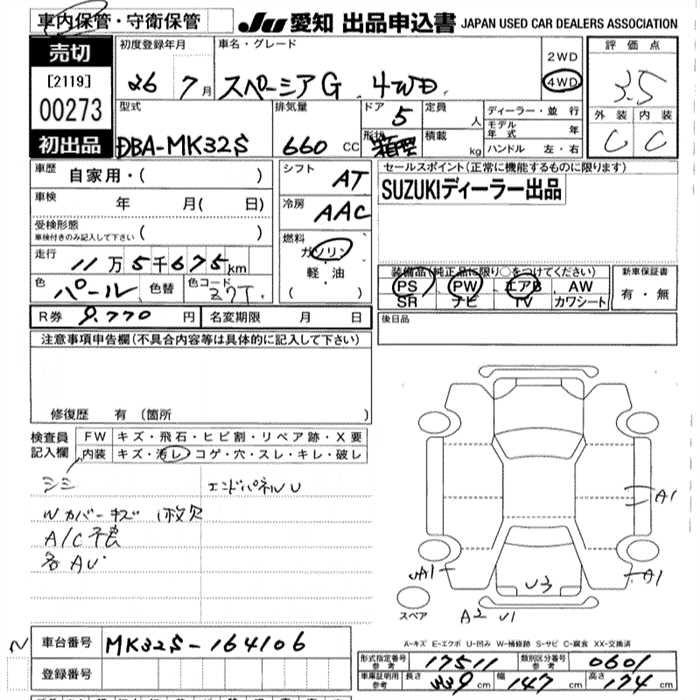 車内保管・守衛保管
JU 愛知 出品申込書 JAPAN USED CAR DEALERS ASSOCIATION
売切
[2119]
00273
初出品
初度登録年月
26 7月
車名・グレード
スペーシアG 4WD
2WD
4WD
評価点
3.5
外装 内装
C C
型式
DBA-MK32S
排気量
660 cc
ドア
5
形状
箱型
定員
人
積載
kg
ディーラー・並行
モデル年式 年
ハンドル 左・右
車歴
自家用・( )
車検
年 月( 日)
受検形態
車検付きのみ記入して下さい
( )
走行
11万5千675km
色
パール
色替
色コード
Z7T
R券 9.770 円
名変期限 月 日
シフト
AT
冷房
AAC
燃料
ガソリン
軽・油
( )
セールスポイント(正常に機能するものに限ります)
SUZUKIディーラー出品
装備品(純正品に限り○をつけてください)
PS PW エアB AW
SR ナビ TV カワシート
新車保証書
有・無
後日品
注意事項申告欄(不具合内容等は具体的に記入して下さい)
修復歴 有 (箇所 )
検査員
記入欄
FW キズ・飛石・ヒビ割・リペア跡・X要
内装 キズ・汚レ・コゲ・穴・スレ・キレ・破レ
シミ
エンドパネルU
Wカバーキズ 1枚欠
A/C不良
各AU
A1
A1
UA1
U3
A2 U1
スペア
A-キズ E-エクボ U-凹み W-補修跡 S-サビ C-腐食 XX-交換済
車台番号 MK32S-164106
登録番号
形式指定番号
参考
17511
類別区分番号
参考
0601
車庫証明用
参考
長さ 339 cm 幅 147 cm 高さ 174 cm